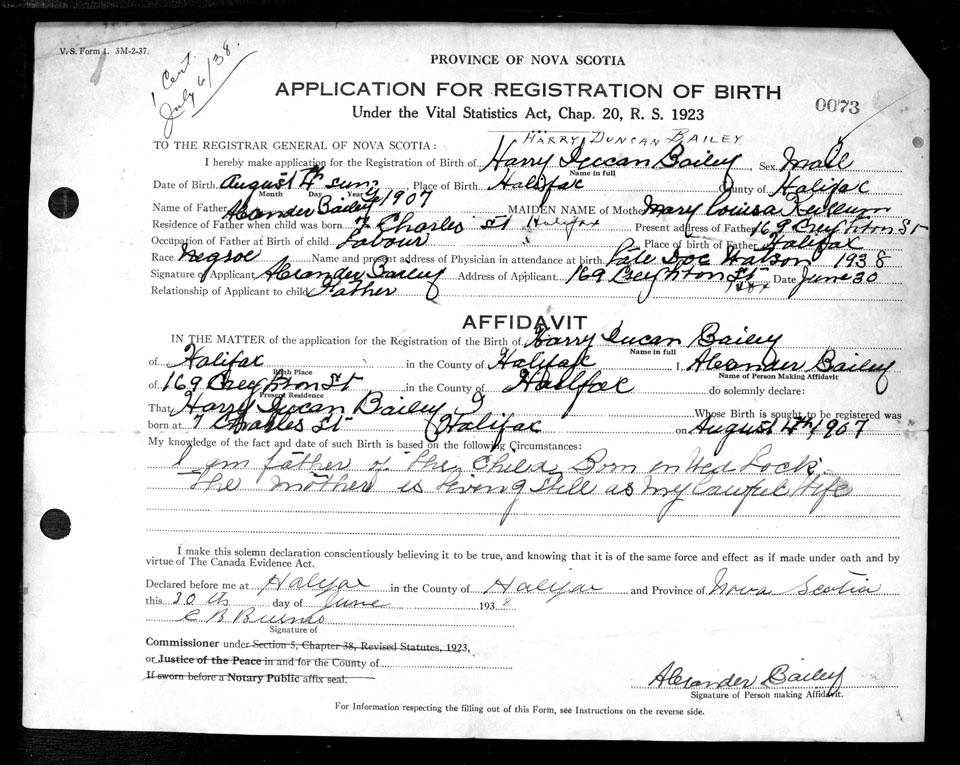 V. S. Form 1. 3M-2-37.
1 Cert.
July 6/38.
PROVINCE OF NOVA SCOTIA
APPLICATION FOR REGISTRATION OF BIRTH
0073
Under the Vital Statistics Act, Chap. 20, R. S. 1923
HARRY DUNCAN BAILEY
TO THE REGISTRAR GENERAL OF NOVA SCOTIA:
I hereby make application for the Registration of Birth of Harry Ducan Bailey Sex Male
Name in full
Date of Birth August 4th sun 1907 Place of Birth Halifax County of Halifax
Month Day Year
Name of Father Alexander Bailey MAIDEN NAME of Mother Mary Louisa
Residence of Father when child was born 7 Charles St Halifax Present address of Father 169 Creighton St
Occupation of Father at Birth of child Labour Place of birth of Father Halifax
Race Negroe Name and present address of Physician in attendance at birth Late Doc Watson 1938
Signature of Applicant Alexander Bailey Address of Applicant 169 Creighton St Date June 30
Relationship of Applicant to child Father
AFFIDAVIT
IN THE MATTER of the application for the Registration of the Birth of Harry Ducan Bailey
Name in full
of Halifax in the County of Halifax I, Alexander Bailey
Birth Place Name of Person Making Affidavit
of 169 Creighton St in the County of Halifax do solemnly declare:
Present Residence
That Harry Ducan Bailey Whose Birth is sought to be registered was
born at 7 Charles St Halifax on August 4th, 1907
My knowledge of the fact and date of such Birth is based on the following Circumstances:
I am father of the Child Born in Wed Lock
The mother is Living Still as My Lawful Wife
I make this solemn declaration conscientiously believing it to be true, and knowing that it is of the same force and effect as if made under oath and by
virtue of The Canada Evidence Act.
Declared before me at Halifax in the County of Halifax and Province of Nova Scotia
this 30 th day of June 1938
C B
Signature of
Commissioner under Section 5, Chapter 38, Revised Statutes, 1923,
or Justice of the Peace in and for the County of
If sworn before a Notary Public affix seal.
Alexander Bailey
Signature of Person making Affidavit.
For Information respecting the filling out of this Form, see Instructions on the reverse side.